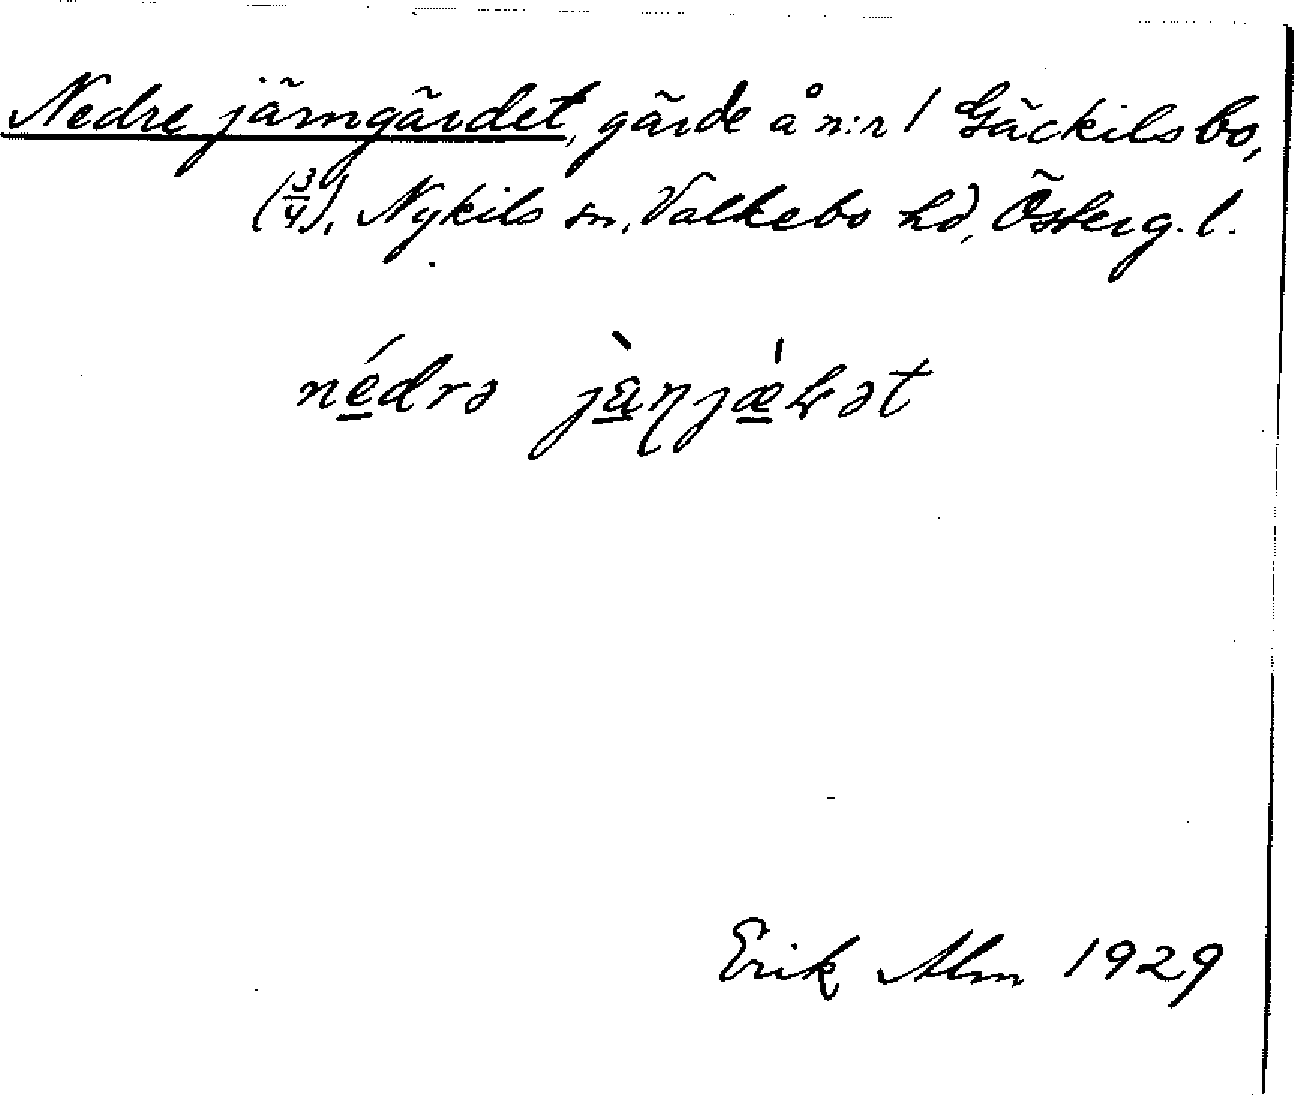 Nedre jämgärdet, gärde å n:r 1 Gäckilsbo,
(3/4), Nykils sn, Valkebo hd, Österg. l.
nédrə jànjæ̀ɽət
Erik Alm 1929